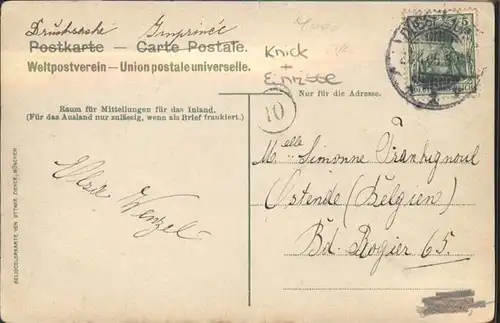 Drucksache Imprimée
Postkarte — Carte Postale.
Weltpostverein — Union postale universelle.
Knick
+
Einrisse
5
Nur für die Adresse.
Raum für Mitteilungen für das Inland.
(Für das Ausland nur zulässig, wenn als Brief frankiert.)
10
Elsa Wenzel
Melle Simonne Frankignoul
Ostende (Belgien)
Bd. Rogier 65.
HELIOCOLORKARTE VON OTTMAR ZIEHER, MÜNCHEN